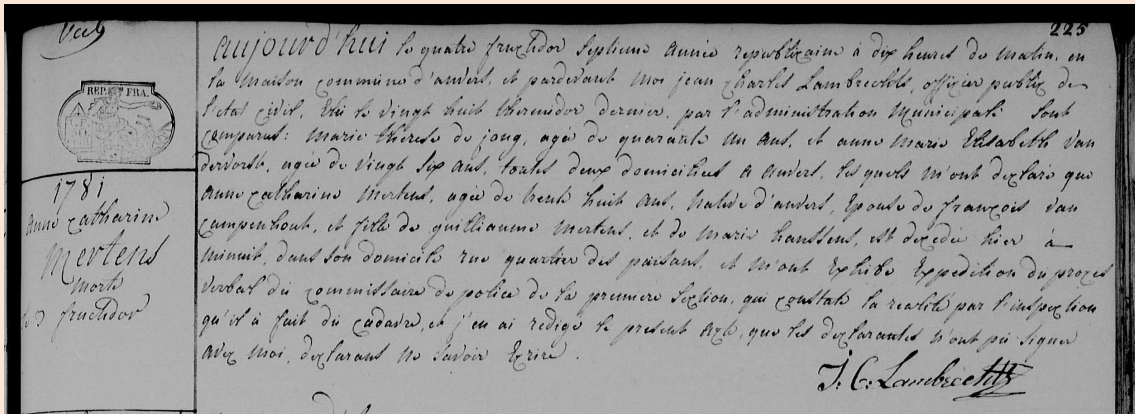 225
REP. FRA.
1781
Anne Catharine
Mertens
morte
le 3 fructidor
aujourd'hui le quatre fructidor septieme année republicaine à dix heures du matin, en
la maison commune d'anvers, et pardevant moi jean charles Lambrechts, officier public de
l'etat civil, élu le vingt huit thermidor dernier, par l'administration municipale sont
comparus: marie thérese de jong, agée de quarante un ans, et anne marie Elisabeth van
dervorst, agée de vingt six ans, toutes deux domiciliées a anvers, lesquels m'ont declaré que
anne catharine Mertens, agée de trente huit ans, native d'anvers, Epouse de françois van
campenhout, et fille de guilliaume mertens, et de marie hanssens, est decedée hier à
minuit, dans son domicile rue quartier des paisans, et m'ont Exhibé Expedition du proces
verbal du commissaire de police de la premiere section, qui constate la realité par l'inspection
qu'il à fait du cadavre, et j'en ai redigé le present acte, que les declarantes n'ont pu signer
avec moi, declarant ne savoir Ecrire.
J. C. Lambrechts